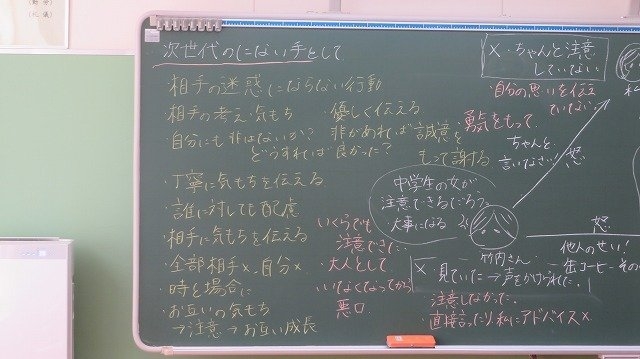 次世代のにない手として
相手の迷惑にならない行動
相手の考え・気もち
・優しく伝える
・自分にも非はないか?
どうすれば良かった?
非があれば誠意を
もって謝る
・丁寧に気もちを伝える
・誰に対しても配慮
・相手に気もちを伝える
・全部相手×.自分×
・時と場合に
・お互いの気もち
→注意→お互い成長
いくらでも
注意できた.
大人として
いなくなってから
悪口
・勇気をもって
中学生の女が
注意できるだろう?
大事になる
ちゃんと
言いなさい!
怒
×・ちゃんと注意
していない.
・自分の思いを伝え
ていない.
私
竹内さん
怒
他人のせい!
缶コーヒー
その
× 見ていた→声をかけられた.
注意しなかった.
・直接言ったり、私にアドバイス×